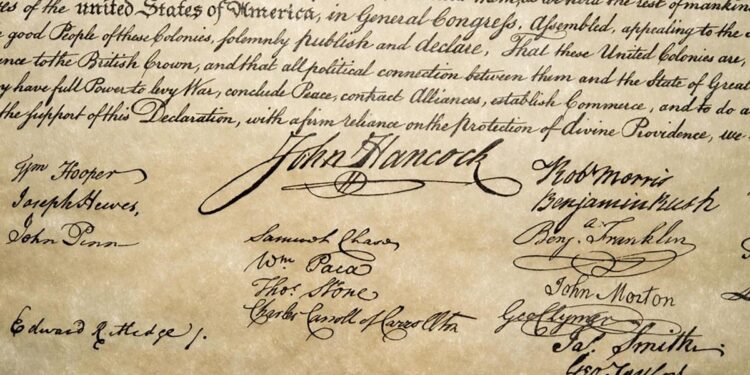 es of the united States of America, in General Congress, Assembled, appealing to the
e good People of these Colonies, solemnly publish and declare, That these United Colonies are,
ance to the British Crown, and that all political connection between them and the State of Great
y have full Power to levy War, conclude Peace, contract Alliances, establish Commerce, and to do
the support of this Declaration, with a firm reliance on the protection of divine Providence, we
John Hancock
Wm Hooper
Joseph Hewes,
John Penn
Edward Rutledge /.
Samuel Chase
Wm. Paca
Thos. Stone
Charles Carroll of Carrollton
Robt Morris
Benjamin Rush
Benja. Franklin
John Morton
Geo Clymer
Jas. Smith.
Geo. Taylor